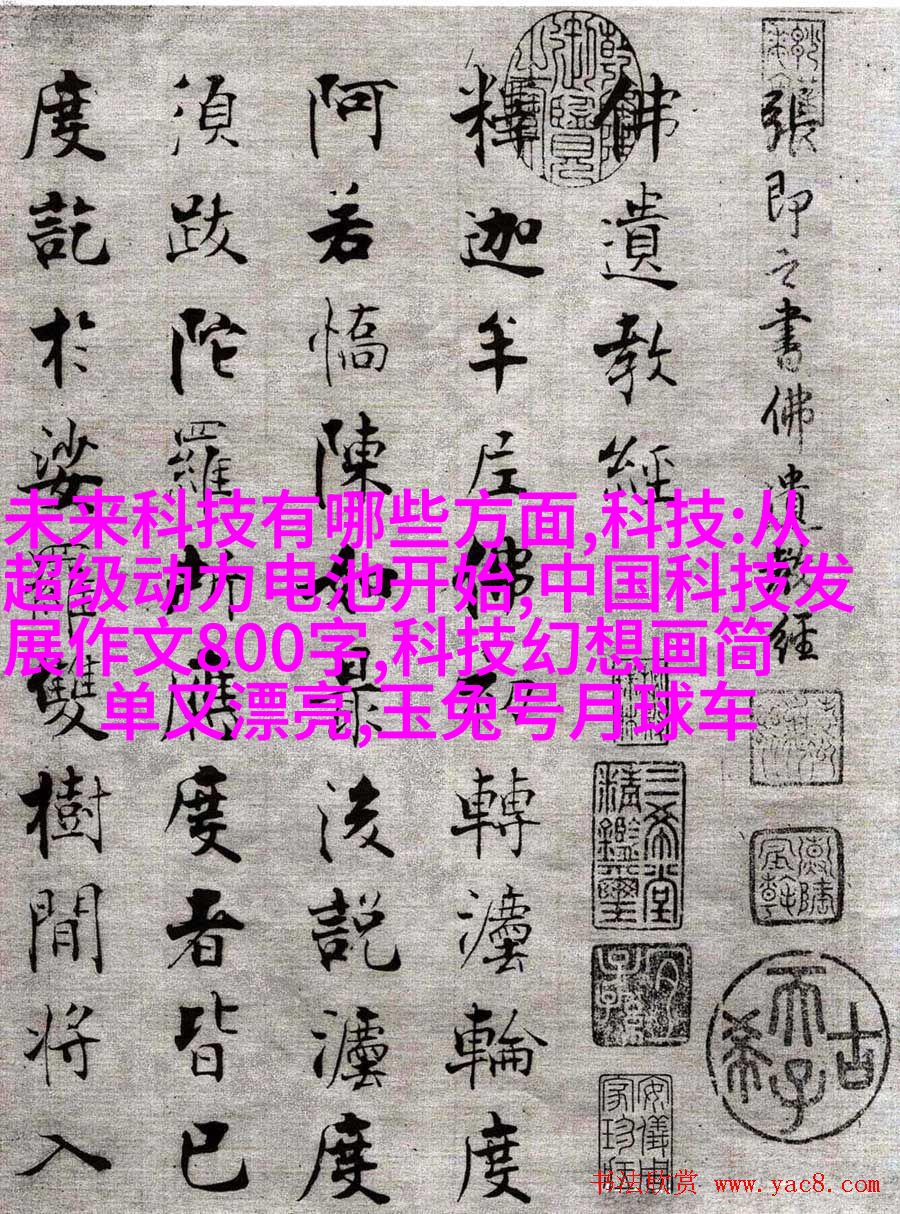 張即之書佛遺教經
佛遺教經
釋迦牟尼佛初轉灋輪度
阿若憍陳如最後說灋度
須跋陀羅所應度者皆已
度訖於娑羅雙樹間將入
未来科技有哪些方面,科技:从
超级动力电池开始,中国科技发
展作文800字,科技幻想画简
单又漂亮,玉兔号月球车
三希堂精鑑璽
宜子孫
古希天子
书法欣赏 www.yac8.com